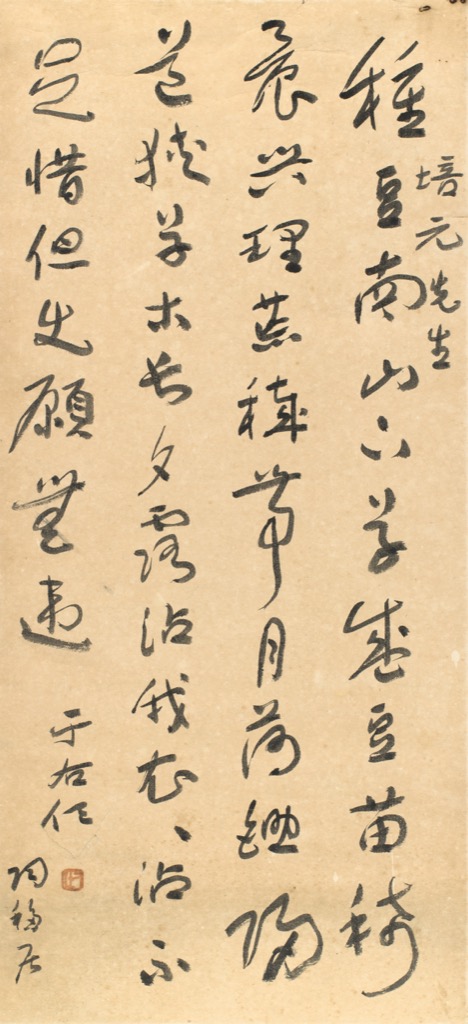 培元先生
種豆南山下草盛豆苗稀
晨興理荒穢帶月荷鋤歸
道狹草木長夕露沾我衣、沾不
足惜但使願無違
于右任
陶移居